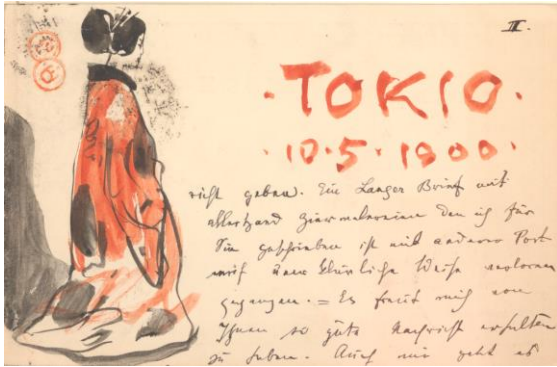 III.
·TOKIO·
·10·5·1900·
nicht geben. Ein Langer Brief mit
allerhand den ich für
Sie geschrieben ist mit anderer Post
Weise verloren
gegangen. = Es freut mich von
Ihnen so gute Nachricht erhalten
zu haben. Auch mir geht es